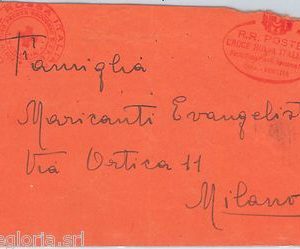 R.R. POSTE
CROCE ROSSA ITALIANA
Famiglia
Maricanti Evangelist
Via Ortica 11
Milano
egloria.srl